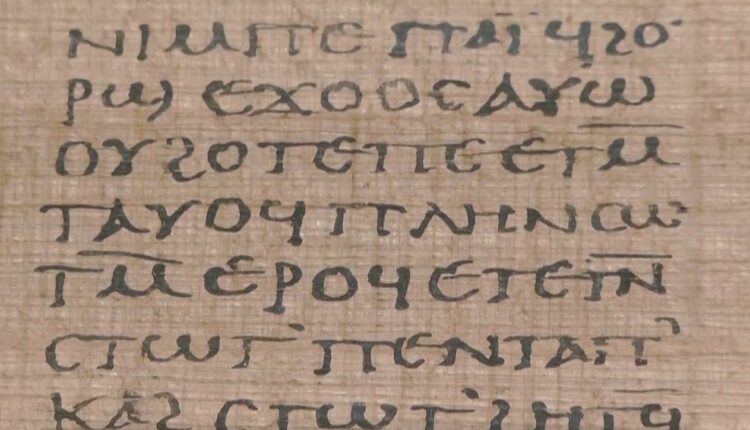 ⲛⲓⲙⲡⲉ ⲡⲁⲓ̈ ϥϩⲟ
ⲣϣ ⲉϫⲟⲟⲥ ⲁⲩⲱ
ⲟⲩϩⲟⲧⲉ ⲡⲉ ⲉⲧⲙ̅
ⲧⲁⲩⲟϥ ⲡⲗⲏⲛ ⲥⲱ
ⲧⲙ̅ ⲉⲣⲟϥ ⲉⲧⲉⲧⲛ̅
ⲥⲧⲱⲧ' ⲡⲉⲛⲧⲁⲡ'
ⲕⲁϩ ⲥⲧⲱⲧ' ϩⲏⲧϥ̅